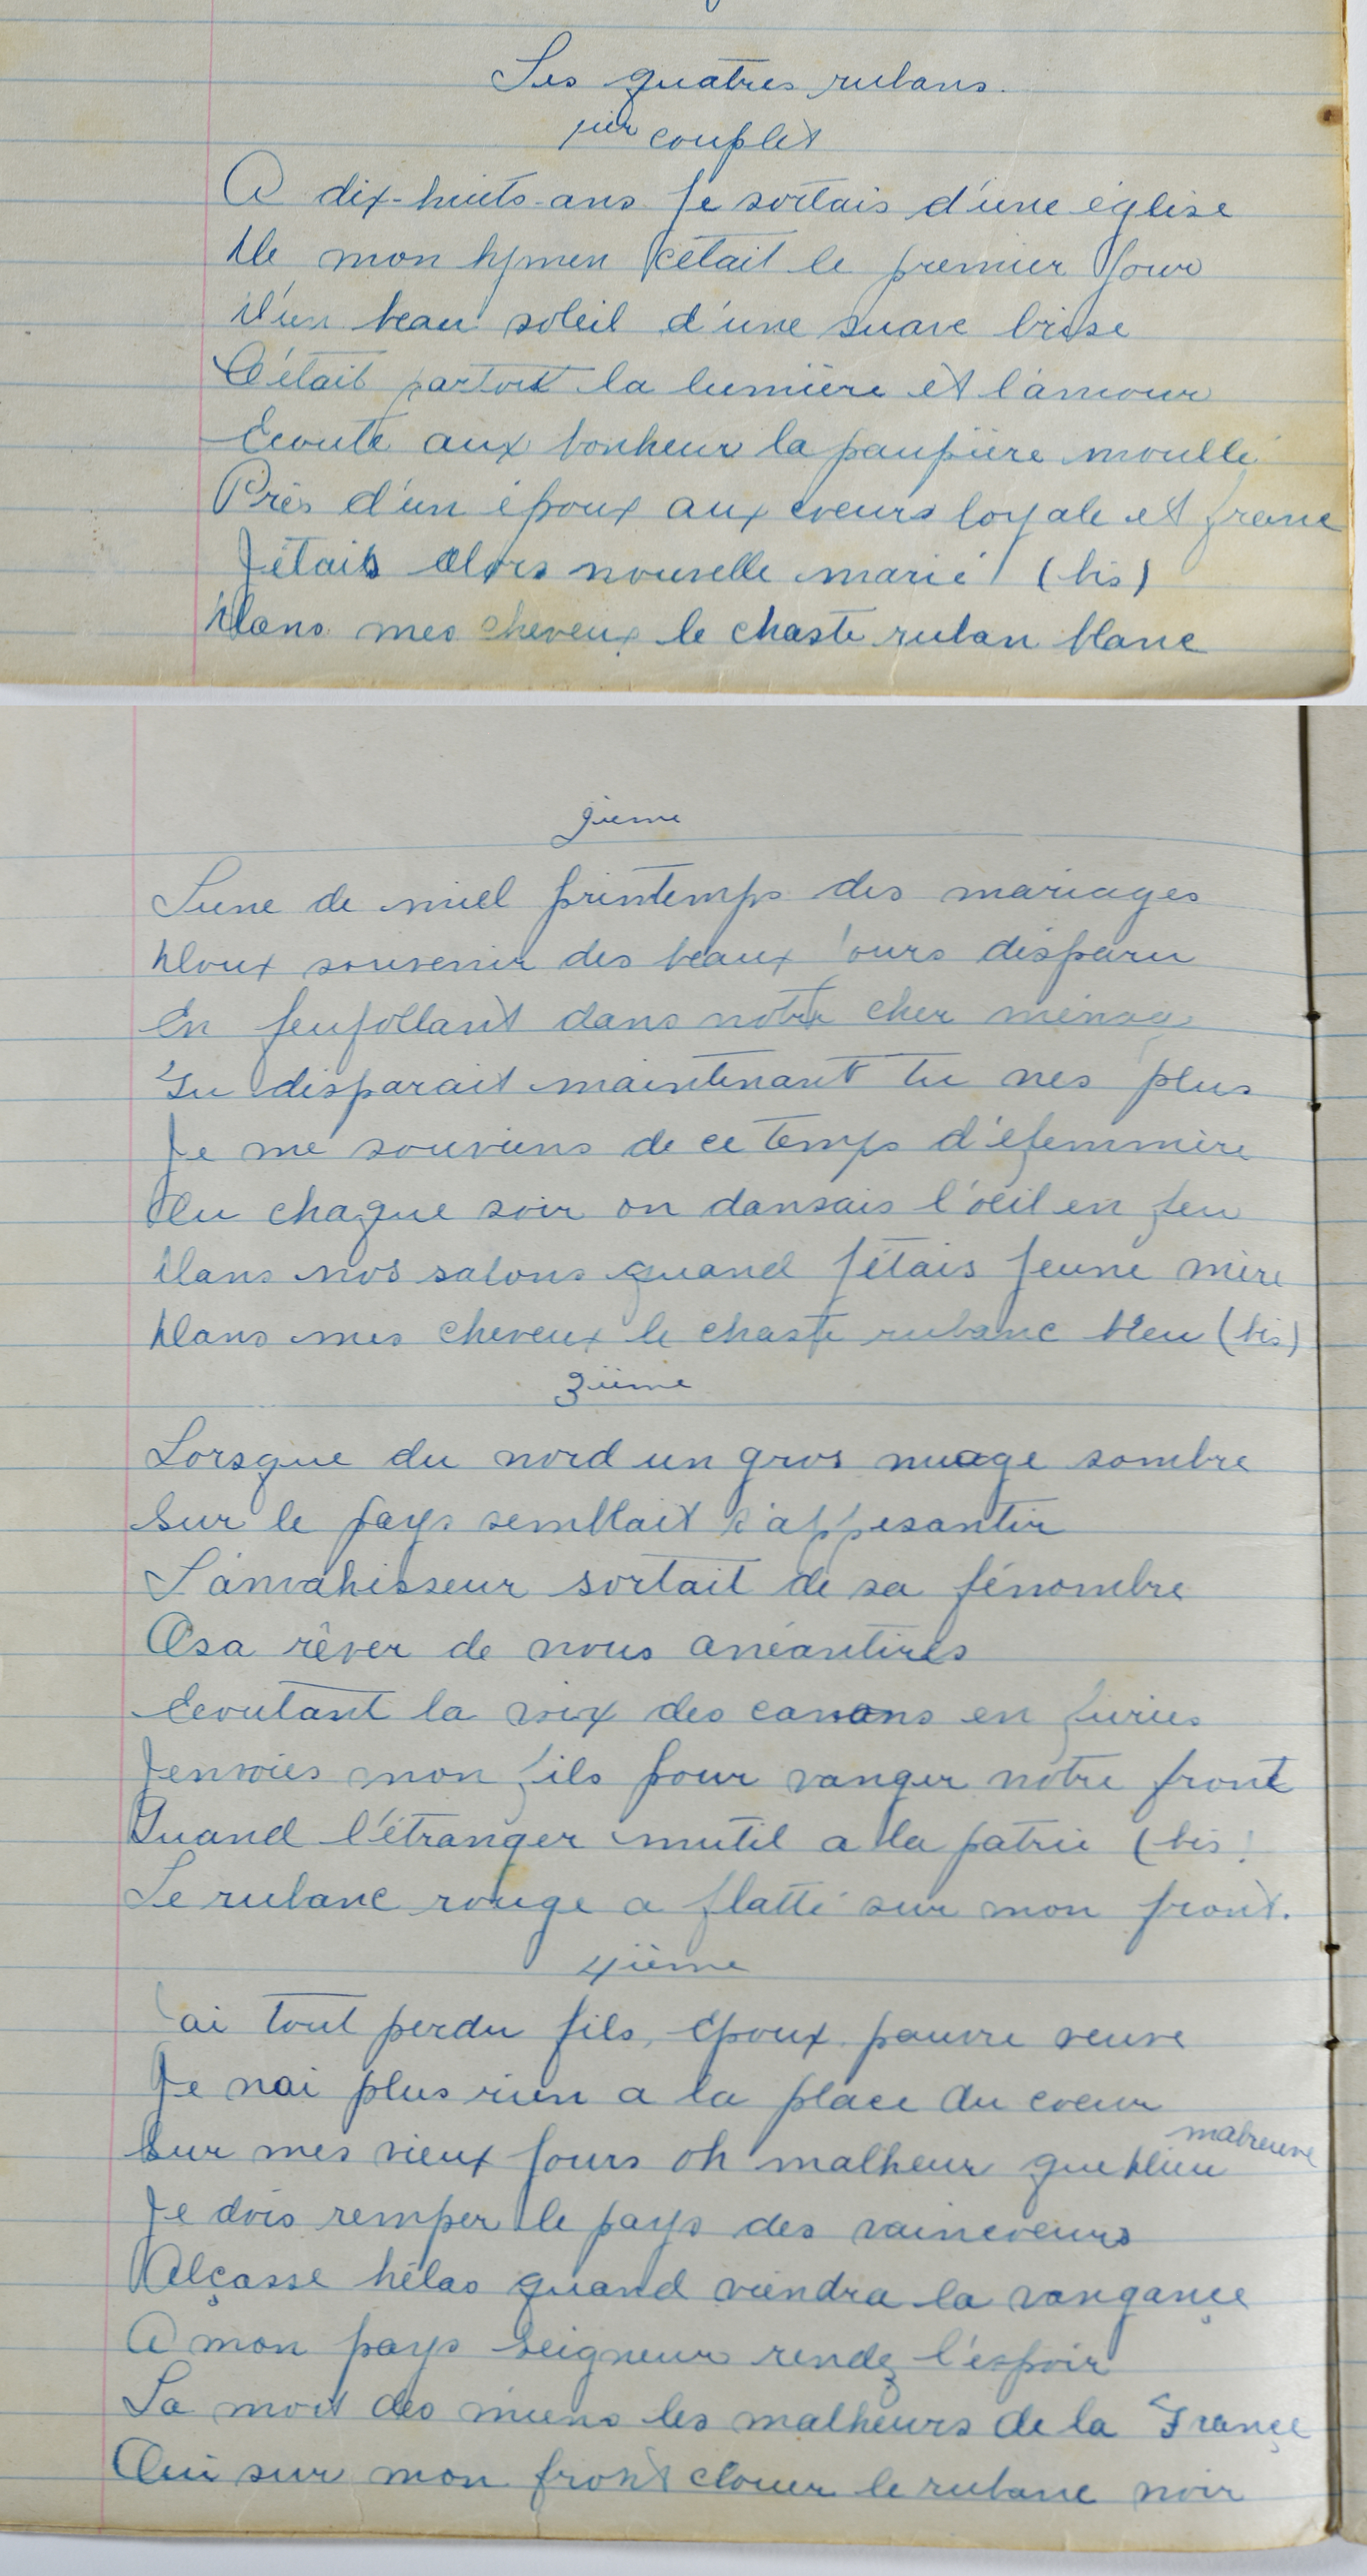 Les quatres rubans.
1ier couplet
A dix-huits-ans Je sortais d'une église
De mon hymen c'était le premier Jour
D'un beau soleil d'une suave brise
C'était partout la lumière et l'amour
Ecoute aux bonheur la paupière moullé
Près d'un époux aux coeurs loyale et franc
J'étais alors nouvelle marié (bis)
Dans mes cheveux le chaste ruban blanc
2ieme
Lune de miel printemps des mariages
Doux souvenir des beaux jours disparu
En feufollant dans notre cher ménage
Tu disparait maintenant tu nes plus
Je me souviens de ce temps d'éfemmère
Ou chaque soir on dansais l'oeil en feu
Dans nos salons quand J'étais Jeune mère
Dans mes cheveux le chaste rubanc bleu (bis)
3ième
Lorsque du nord un gros nuage sombre
Sur le pays semblait s'appesantir
L'anvahisseur sortait de sa pénombre
Osa rêver de nous anéantires
Ecoutant la voix des canons en furies
J'envoies mon fils pour vanger notre front
Quand l'étranger mutil a la patrie (bis)
Le rubanc rouge a flatté sur mon front.
4ième
J'ai tout perdu fils, époux pauvre veuve
Je nai plus rien a la place du coeur
Sur mes vieux Jours oh malheur que Dieu mabreuve
Je dois remper le pays des vaincveurs
Alçasse hélas quand viendra la vangançe
A mon pays Seigneur rendez l'éspoir
La mort des miens les malheurs de la Françe
Oui sur mon front clouer le rubanc noir